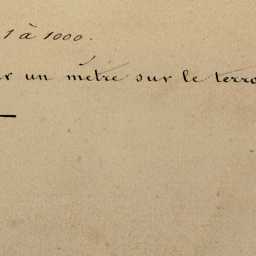 1 à 1000.
un mètre sur le